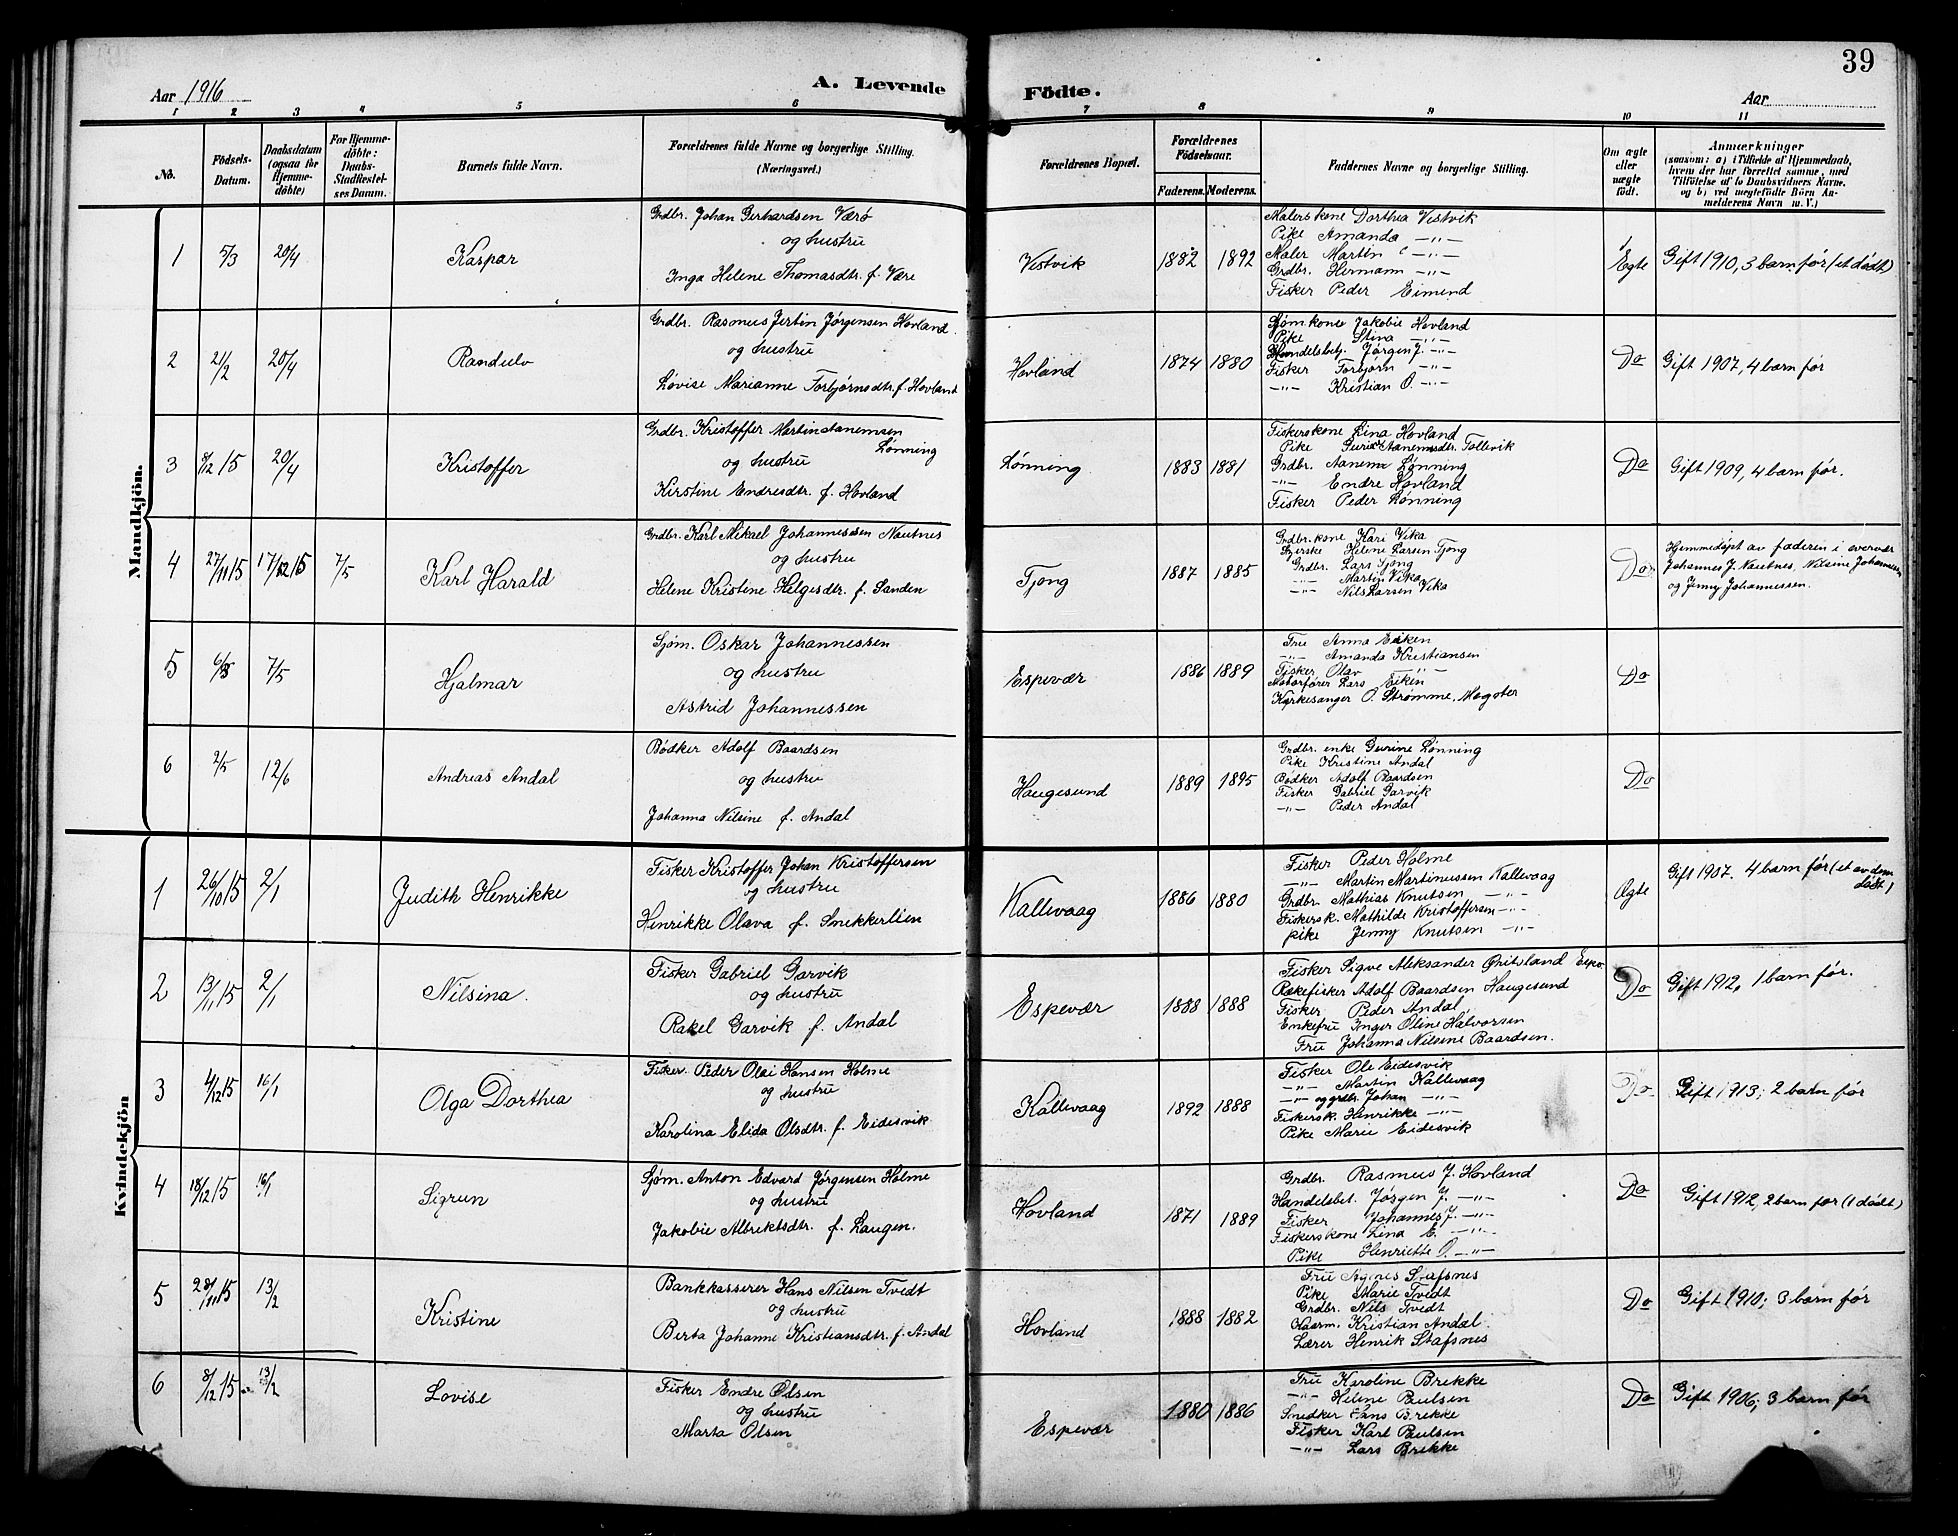 39
Aar 1916
A. Levende
Födte.
Aar
1 2 3 4 5 6 7 8 9 10 11
No.
Födsels-Datum.
Daabsdatum (ogsaa for Hjemme-döbte)
For Hjemme-döbte: Daabs-Stadfæstel-ses Datum.
Barnets fulde Navn.
Forældrenes fulde Navne og borgerlige Stilling.
(Næringsvei.)
Forældrenes Bopæl.
Forældrenes Födselsaar.
Faderens. Moderens.
Faddernes Navne og borgerlige Stilling.
Om ægte eller uægte födt.
Anmærkninger
(saasom: a) i Tilfælde af Hjemmedaab,
hvem der har forrettet samme, med
Tilföielse af to Daabsvidners Navne.
og b) ved uegtefödte Börn An-
melderens Navn m. V.)
Mandkjön.
1 5/3 20/4 Kaspar
Grdbr. Johan Gerhardsen Værø
og hustru
Inga Helene Thomasdtr. f. Være
Vestvik 1882 1892
Malerskone Dorthea Vestvik
Pike Amanda -"-
Maler Martin -"-
Grdbr. Hermann -"-
Fisker Peder Eimend
Egte
Gift 1910, 3 barn før (et dødt)
2 21/2 20/4 Randulv
Grdbr. Rasmus Jertin Jørgensen Hovland.
og hustru
Lovise Marianne Torbjørnsdtr. f. Hovland
Hovland 1874 1880
Sjøm.kone Jakobie Hovland
Pike Stina -"-
Handelsbetj. Jørgen J. -"-
Fisker Torbjørn -"-
-"- Kristian O. -"-
Do
Gift 1907, 4 barn før
3 8/12 15 20/4 Kristoffer
Grdbr. Kristoffer Martin Aanemsen
Lønning
og hustru
Kirstine Endresdtr. f. Hovland
Lønning 1883 1881
Fiskerskone Lina Hovland
Pike Guri Aanemsdtr. Tollevik
Grdbr. Aanem Lønning
-"- Endre Hovland
Fisker Peder Lønning
Do
Gift 1909, 4 barn før.
4 27/11 15 17/12 15 7/5 Karl Harald
Grdbr. Karl Mikael Johannessen Nautnes
og hustru
Helene Kristene Helgesdtr. f. Sanden
Tjong 1887 1885
Grdbr.kone Kari Vika
Helene Larsen Tjong
Grdbr. Lars Tjong
-"- Martin Vika
-"- Nils Larsen Vika
Do
Hjemmedøpt av faderen i overvær
Johannes J. Nautnes, Nilsine Johannessen
og Jenny Johannessen.
5 7/5 Hjalmar
Sjøm. Oskar Johannessen
og hustru
Astrid Johannessen
Espevær 1886 1889
Fru Anna Eiken
-"- Amanda Kristiansen
Fisker Olav -"-
Motorfører Lars Eiken
Kirkesanger O. Strømme, Mogster
Do
6 2/5 12/6 Andreas Andal
Bødker Adolf Baardsen
og hustru
Johanna Nilsine f. Andal
Haugesund 1889 1895
Grdbr. enke Gurine Lønning
Pike Kristine Andal
Bødker Adolf Baardsen
Fisker Gabriel Garvik
-"- Peder Andal
Do
Kvindekjön
1 26/10 15 2/1 Judith Henrikke
Fisker Kristoffer Johan Kristoffersen
og hustru
Henrikke Olava f. Snekkerlien
Kallevaag 1886 1880
Fisker Peder Holme
-"- Martin Martinussen Kallevaag
Grdbr. Mathias Knutsen -"-
Fiskersk. Mathilde Kristoffersen -"-
Pike Jenny Knutsen -"-
Ægte
Gift 1907. 4 barn før (et av dem
dødt)
2 13/11 15 2/1 Nilsina.
Fisker Gabriel Garvik
og hustru
Rakel Garvik f. Andal
Espevær 1888 1888
Fisker Sigve Aleksander Øritsland Espv.
Rækefisker Adolf Baardsen Haugesund
Fisker Peder Andal
Enkefru Inger Oline Halvorsen
Fru Johanna Nilsine Baardsen.
Do
Gift 1912, 1 barn før.
3 4/12 15 16/1 Olga Dorthea
Fisker. Peder Olai Hansen Holme
og hustru
Karolina Elida Olsdtr. f. Eidesvik
Kallevaag 1892 1888
Fisker Ole Eidesvik
-"- Martin Kallevaag
-"- og grdbr. Johan -"-
Fiskersk. Henrikke -"-
Pike Marie Eidesvik
Do
Gift 1913; 2 barn før
4 18/12 15 16/1 Sigrun
Sjøm. Anton Edvard Jørgensen Holme
og hustru
Jakobie Albrektsdtr. f. Laugen.
Hovland 1871 1889
Grdbr. Rasmus J. Hovland
Handelsbet. Jørgen J. -"-
Fisker Johannes J. -"-
Fiskerskone Lina E. -"-
Pike Henriette O. -"-
Do
Gift 1912, 2 barn før (1 dødt)
5 28/11 15 13/2 Kristine
Bankkasserer Hans Nilsen Tvedt
og hustru
Berta Johanne Kristiansdtr. f. Andal
Hovland 1888 1882
Fru Agnes Stafsnes
Pike Marie Tvedt
Grdbr. Nils Tvedt
Gaarm. Kristian Andal.
Lærer Henrik Stafsnes
Do
Gift 1910; 3 barn før
6 8/12 15 13/2 Lovise
Fisker Endre Olsen
og hustru
Marta Olsen
Espevær 1880 1886
Fru Karoline Brekke
-"- Helene Paulsen
Snedker Hans Brekke
Fisker Karl Paulsen
-"- Lars Brekke
Do
Gift 1906; 3 barn før